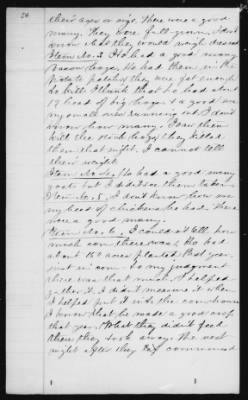 26
their ages or size, there was a good
many, They were full grown, I dont
know what they would weigh dressed
Item No. 3. He had a good many
Bacon hogs, He had them in the
potato patch, they were fat enough
to kill. I think that he had about
17 head of big hogs & a good many
small ones running out, I don't
know how many. I saw them
kill the stock hogs, they killed
them that night. I cannot tell
their weight
Item No. 4. He had a good many
goats but I didn't see them taken
Item No. 5. I don't know how ma
ny head of chickens he had. There
was a good many.
Item No. 6. I could not tell how
much corn there was, He had
about 150 acres planted that year
in corn. To my judgment
there was that much, I helped
gather it. I didn't measure it when
I helped put it into the corn house
I know that he made a good crop
that year. What they didn't feed
there they took away. The next
night after they commenced